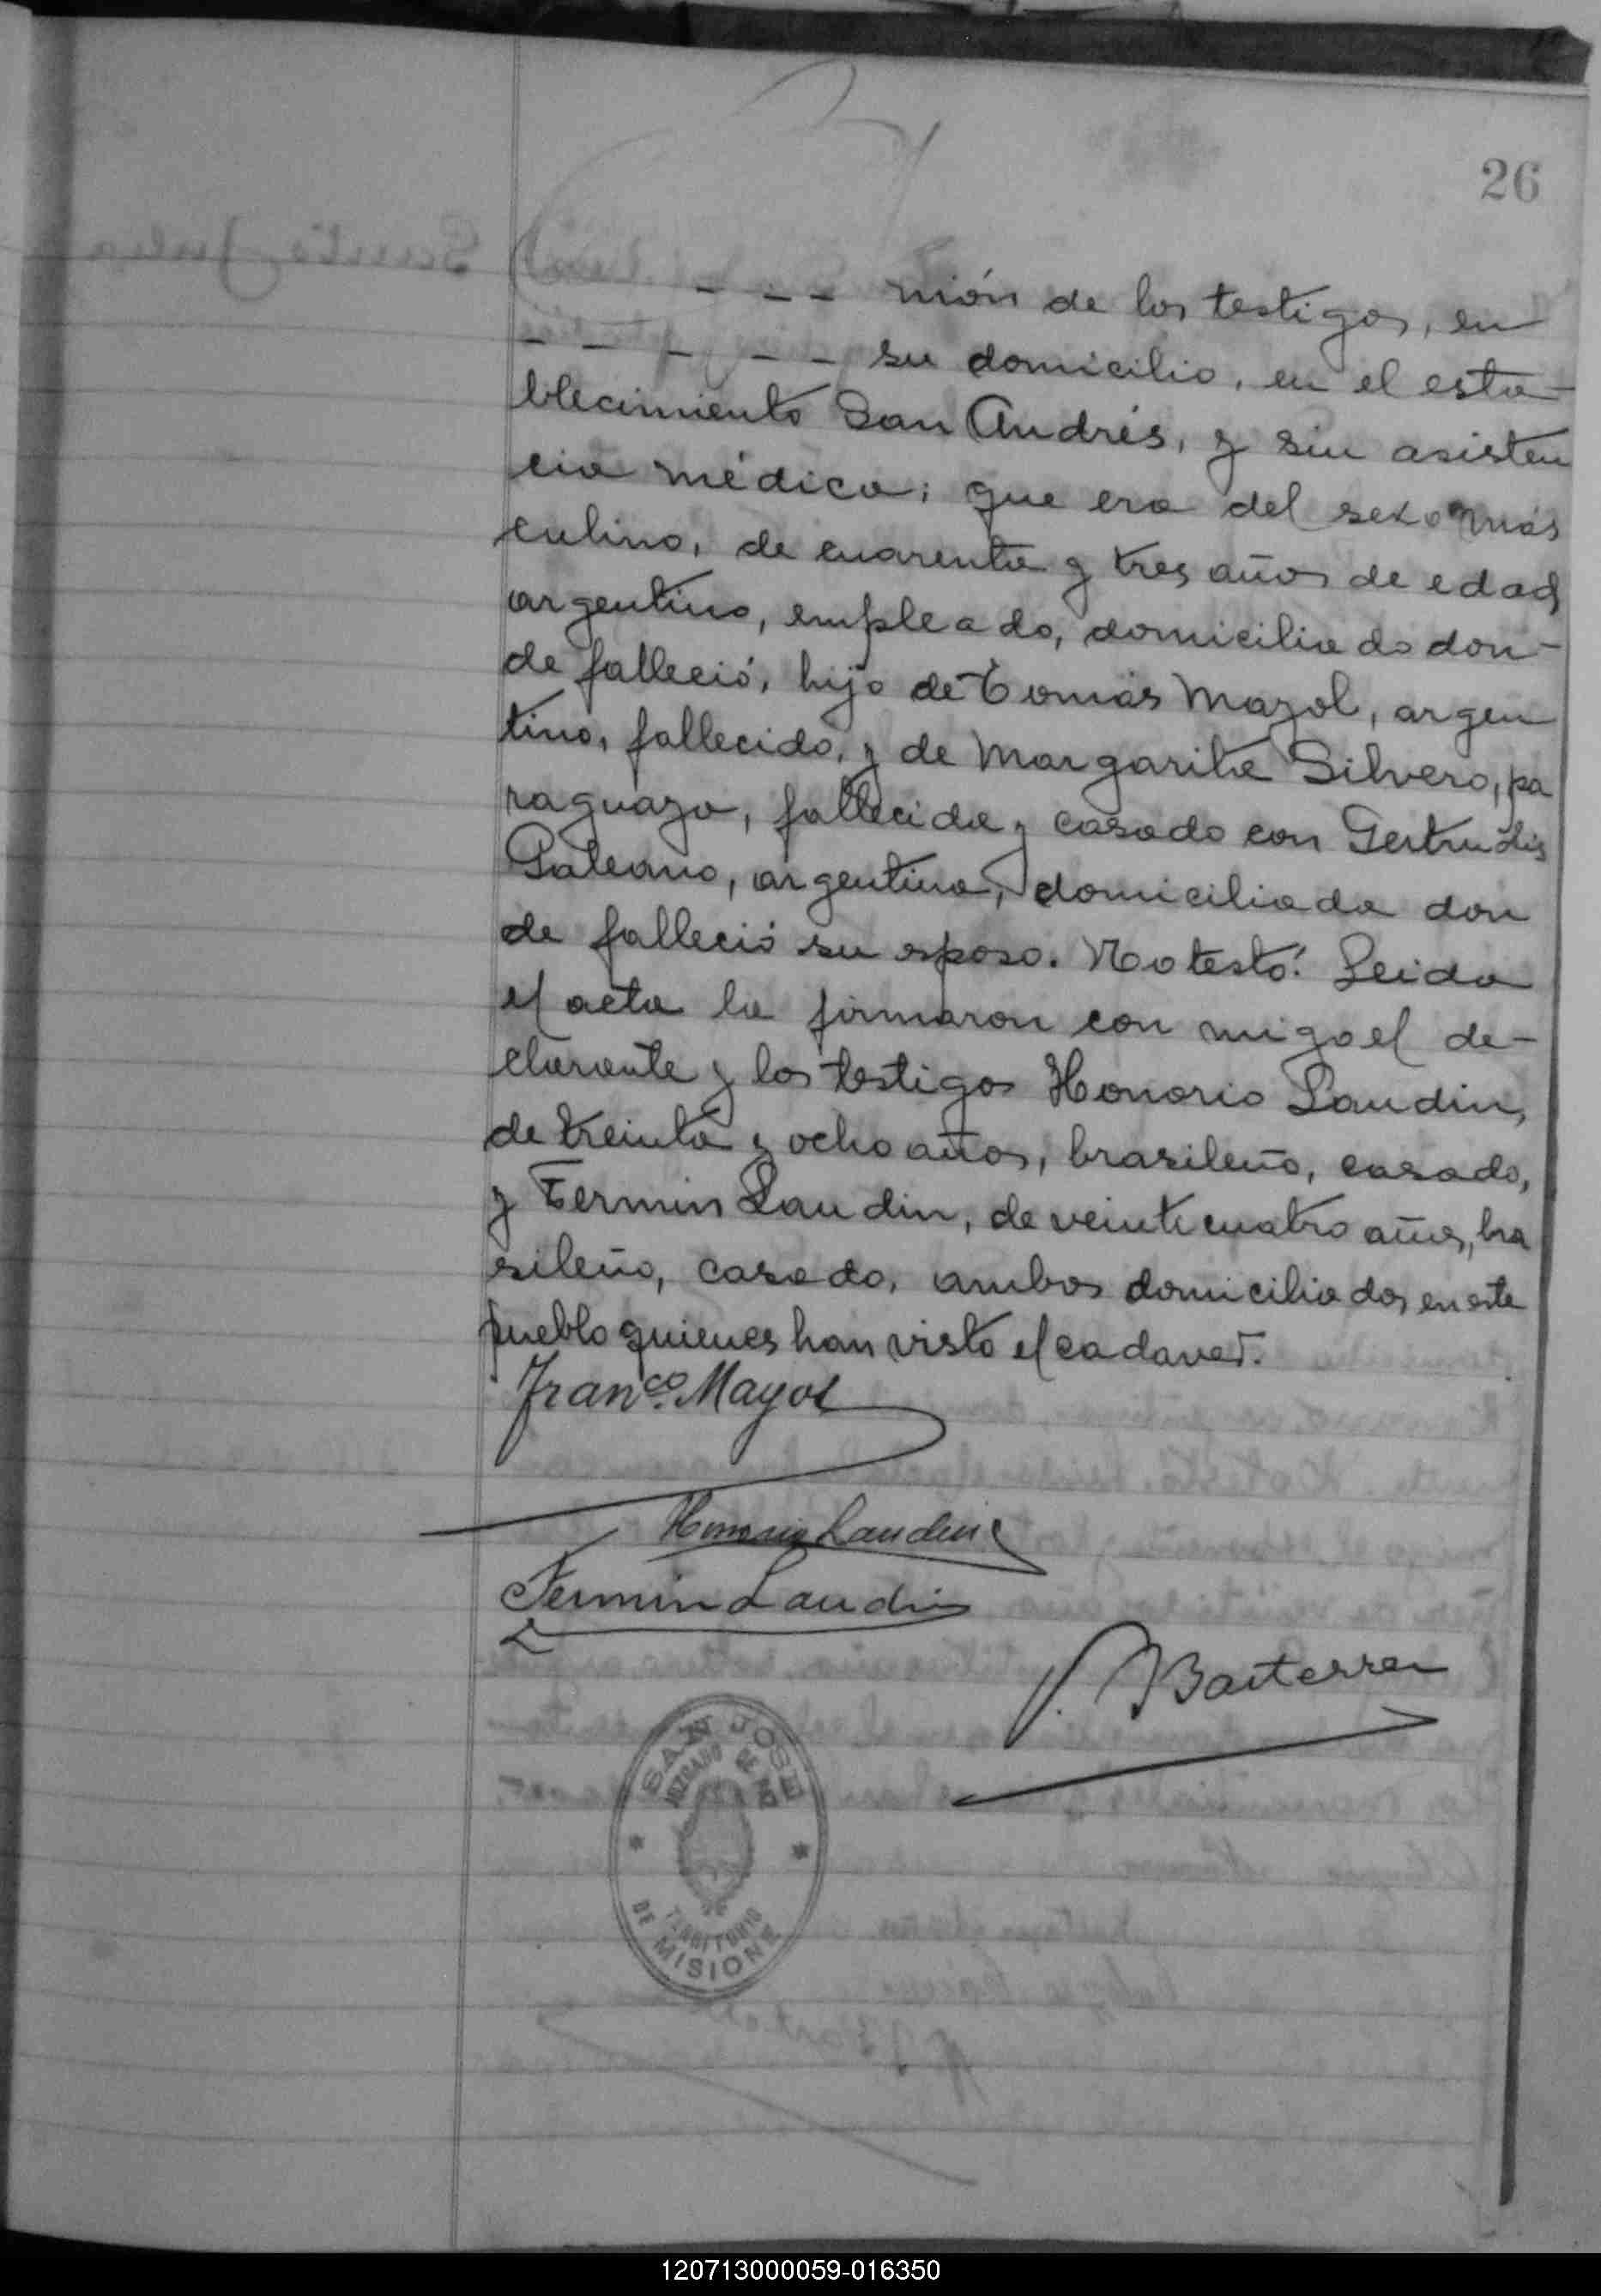 26
- - - nión de los testigos, en
- - - - - su domicilio, en el esta-
blecimiento San Andrés, y sin asisten
cia médica; que era del sexo mas
culino, de cuarenta y tres años de edad,
argentino, empleado, domiciliado don-
de falleció, hijo de Tomás Mayol, argen
tino, fallecido, y de Margarita Silvero, pa
raguaya, fallecida y casado con Gertrudis
Galeano, argentina, domiciliada don
de falleció su esposo. No testó. Leida
el acta la firmaron con migo el de-
clarante y los testigos Honorio Landin,
de treinta y ocho años, brasileño, casado,
y Fermin Landin, de veinticuatro años, bra
sileño, casado, ambos domiciliados en este
pueblo quienes han visto el cadaver.
Franco. Mayol
Honorio Landin
Fermin Landin
V. Basterra
SAN JOSE
JUZGADO DE PAZ
TERRITORIO
DE MISIONES
120713000059-016350